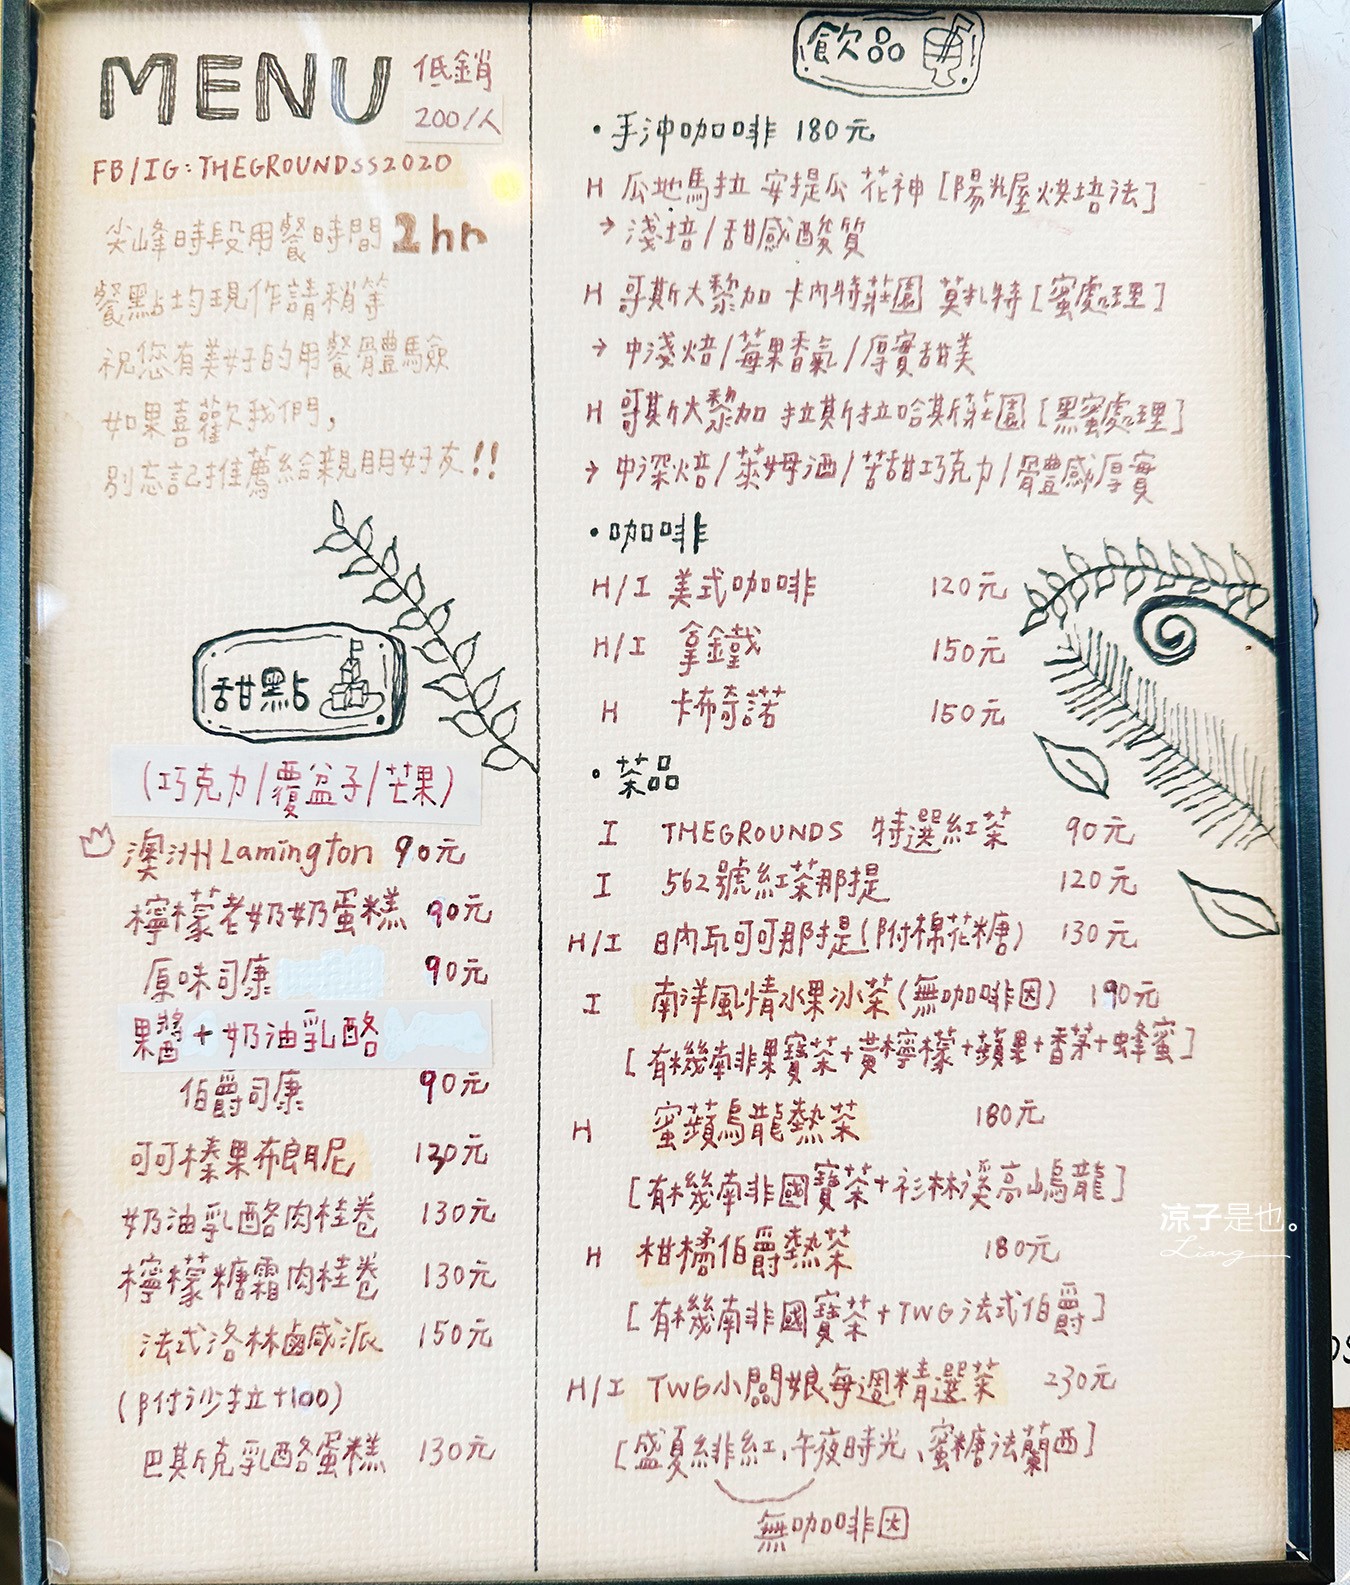 MENU 低銷
200/人
FB/IG:THEGROUNDSS2020
尖峰時段用餐時間 2hr
餐點均現作請稍等
祝您有美好的用餐體驗
如果喜歡我們,
別忘記推薦給親朋好友!!
甜點
(巧克力/覆盆子/芒果)
澳洲Lamington 90元
檸檬老奶奶蛋糕 90元
原味司康 90元
果醬+奶油乳酪
伯爵司康 90元
可可榛果布朗尼 130元
奶油乳酪肉桂卷 130元
檸檬糖霜肉桂卷 130元
法式洛林鹹派 150元
(附沙拉+100)
巴斯克乳酪蛋糕 130元
飲品
•手沖咖啡 180元
H 瓜地馬拉 安提瓜 花神[陽光屋烘培法]
→ 淺培/甜感酸質
H 哥斯大黎加 卡內特莊園 莫札特[蜜處理]
→ 中淺焙/莓果香氣/厚實甜美
H 哥斯大黎加 拉斯拉哈斯莊園[黑蜜處理]
→ 中深焙/萊姆酒/苦甜巧克力/體感厚實
•咖啡
H/I 美式咖啡 120元
H/I 拿鐵 150元
H 卡布奇諾 150元
•茶品
I THEGROUNDS 特選紅茶 90元
I 562號紅茶那提 120元
H/I 日內瓦可可那提(附棉花糖) 130元
I 南洋風情水果冰茶(無咖啡因) 190元
[有機南非果寶茶+黃檸檬+蘋果+香茅+蜂蜜]
H 蜜蘋烏龍熱茶 180元
[有機南非國寶茶+杉林溪高山烏龍]
H 柑橘伯爵熱茶 180元
[有機南非國寶茶+TWG法式伯爵]
H/I TWG小闆娘每週精選茶 230元
[盛夏緋紅、午夜時光、蜜糖法蘭西]
無咖啡因
涼子是也。
Liang